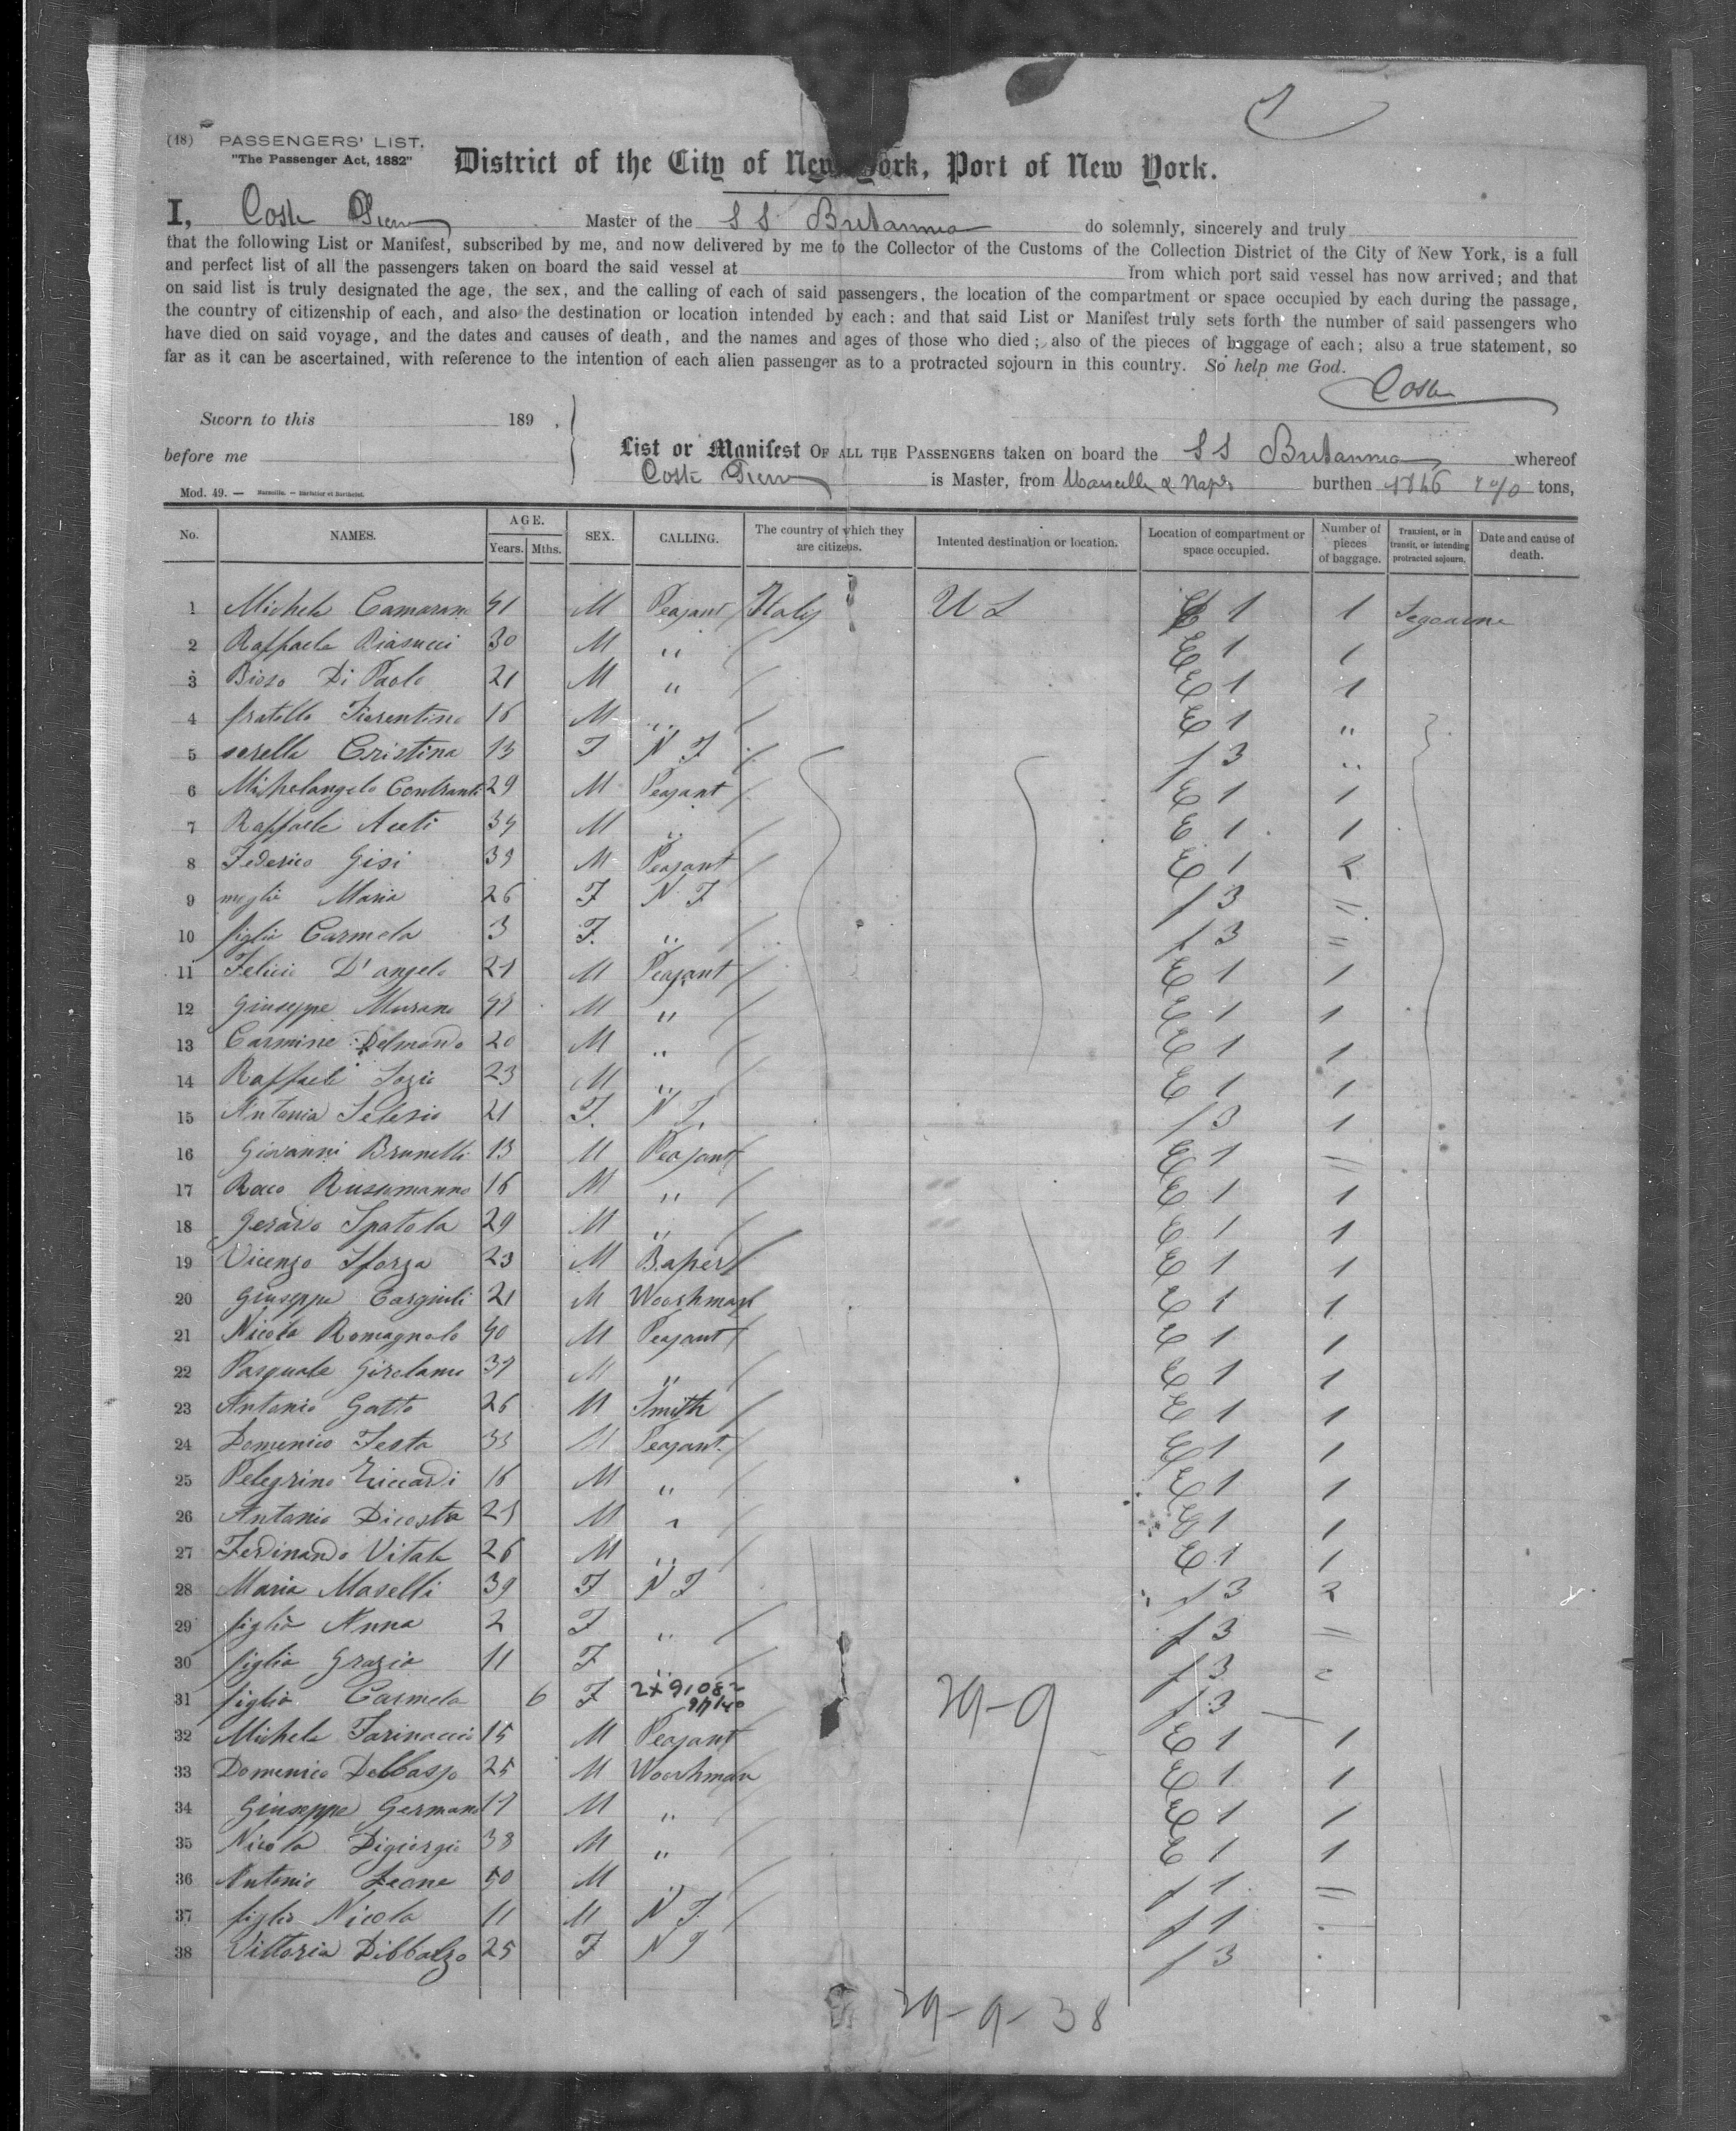 (48) PASSENGERS' LIST.
"The Passenger Act, 1882"
District of the City of New York, Port of New York.
I, Coste Master of the S S Britannia do solemnly, sincerely and truly
that the following List or Manifest, subscribed by me, and now delivered by me to the Collector of the Customs of the Collection District of the City of New York, is a full
and perfect list of all the passengers taken on board the said vessel at from which port said vessel has now arrived; and that
on said list is truly designated the age, the sex, and the calling of each of said passengers, the location of the compartment or space occupied by each during the passage,
the country of citizenship of each, and also the destination or location intended by each: and that said List or Manifest truly sets forth the number of said passengers who
have died on said voyage, and the dates and causes of death, and the names and ages of those who died; also of the pieces of baggage of each; also a true statement, so
far as it can be ascertained, with reference to the intention of each alien passenger as to a protracted sojourn in this country. So help me God.
Coste
Sworn to this 189 .
before me
List or Manifest OF ALL THE PASSENGERS taken on board the S S Britannia whereof
Coste is Master, from Marseille & Naples burthen tons,
Mod. 49. — Marseille. — Barlatier et Barthelet.
No. NAMES. AGE. Years. Mths. SEX. CALLING. The country of which they are citizens. Intented destination or location. Location of compartment or space occupied. Number of pieces of baggage. Transient, or in transit, or intending protracted sojourn. Date and cause of death.
1 Michele 41 M Peasant Italy U S E 1 1
2 Raffaele Biasucci 30 M " E 1 1
3 Di Paolo 21 M " E 1 1
4 fratello Fiorentino 16 M " E 1 "
5 sorella Cristina 13 F N F f 3 "
6 Michelangelo 29 M Peasant E 1 1
7 Raffaele Aceti 34 M " E 1 1
8 Federico Gisi 39 M Peasant E 1 2
9 moglie Maria 26 F N F f 3 =
10 figlia Carmela 3 F. " f 3 =
11 Felicio D'angelo 21 M Peasant E 1 1
12 Giuseppe Murano M " E 1 1
13 Carmine Delmondo 20 M " E 1 1
14 Raffaele Sozio 23 M " E 1 1
15 Antonia Telesio 21 F. N F. f 3 1
16 Giovanni Brunelli 13 M Peasant E 1 =
17 Roco 16 M " E 1 1
18 Gerardo Spatola 29 M " E 1 1
19 Vicenzo Sforza 23 M E 1 1
20 Giuseppe 21 M Woorkman E 1 1
21 Nicola Romagnolo 40 M Peasant E 1 1
22 Pasquale Girolamo M " E 1 1
23 Antonio Gatto 26 M Smith E 1 1
24 Domenico Testa 33 M Peasant. E 1 1
25 Pelegrino Ziccardi 16 M " E 1 1
26 Antonio Dicosta M " E 1 1
27 Ferdinando Vitale 26 M " E 1 1
28 Maria Maselli 39 F N F f 3 2
29 figlia Anna 2 F " f 3 =
30 figlia Grazia 11 F " f 3 =
31 figlia Carmela 6 F 2x91082 29-9 f 3 —
32 Michele Farinacci 15 M Peasant E 1 1
33 Domenico 25 M Woorkman E 1 1
34 Giuseppe Germano 17 M " E 1 1
35 Nicola Digiorgio 38 M " E 1 1
36 Antonio Leone 50 M " f 1 =
37 figlio Nicola 11 M N F. f 1
38 Vittoria Dibbalzo 25 F N F f 3
29-9-38